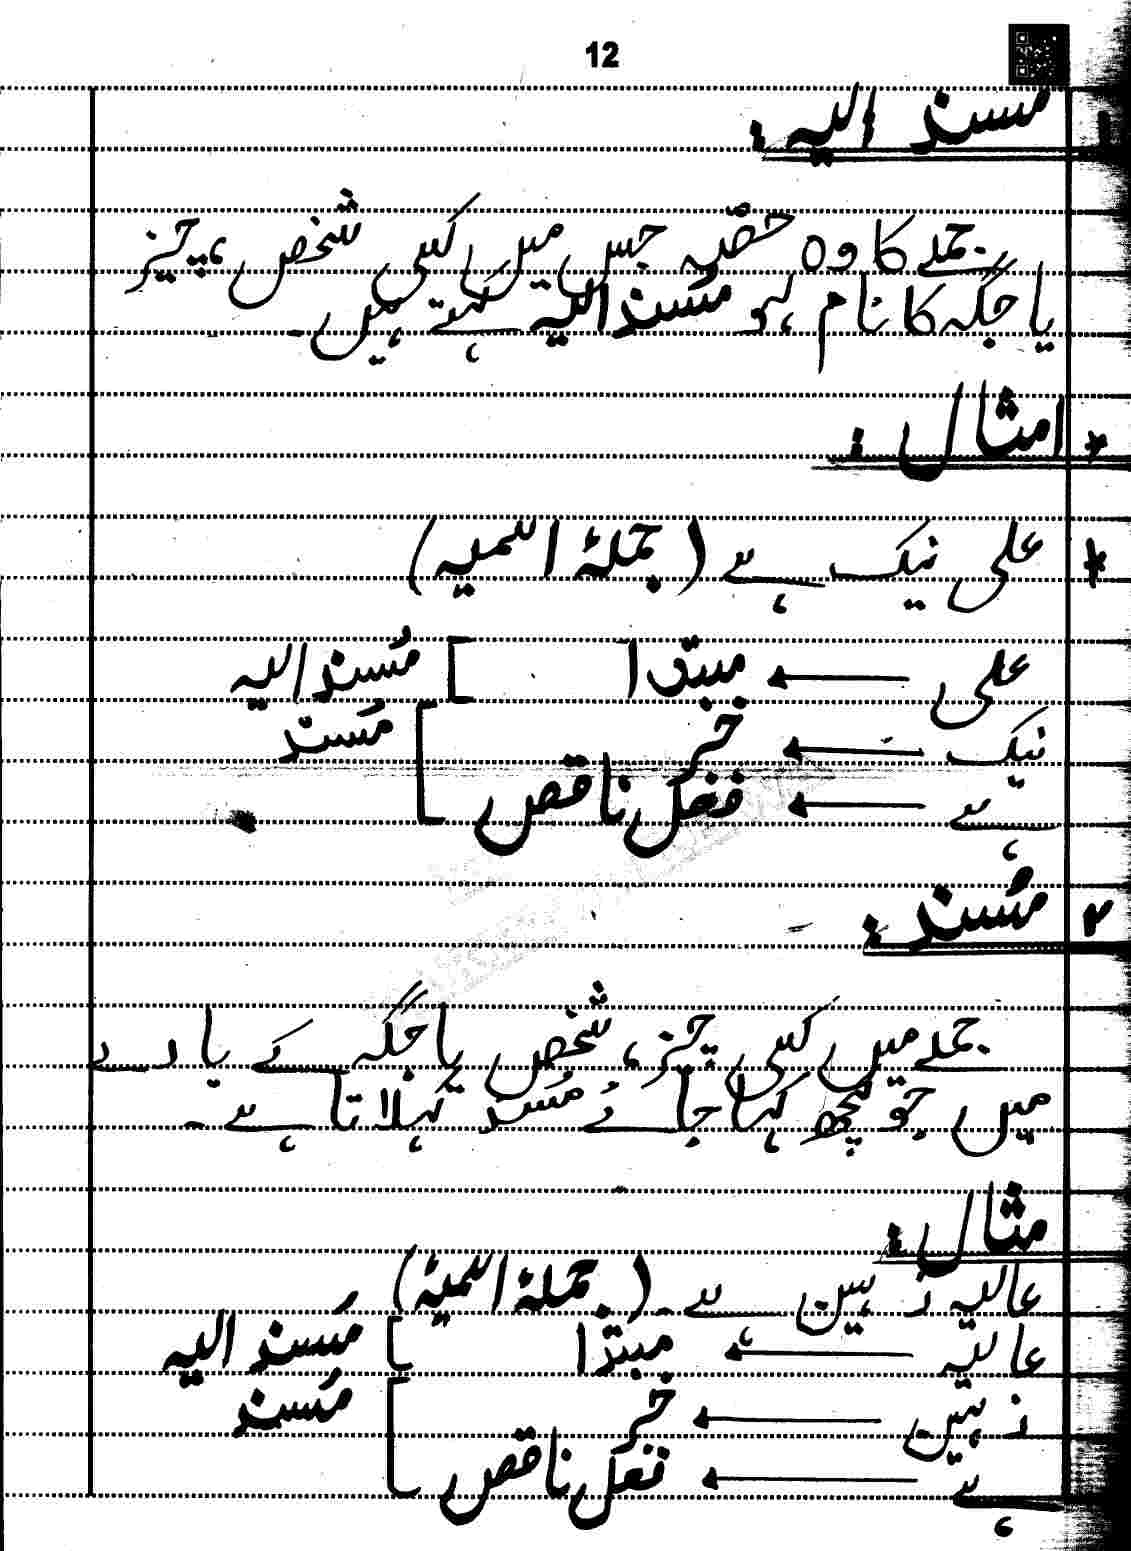 12
۱ مسند الیہ:
جملے کا وہ حصّہ جس میں کسی شخص، چیز
یا جگہ کا نام ہو مُسند الیہ کہتے ہیں۔
* امثال:
* علی نیک ہے (جملۂ اسمیہ)
علی ← مبتدا ] مُسند الیہ
نیک ← خبر ] مُسند
ہے ← فعل ناقص
۲ مُسند:
جملے میں کسی چیز، شخص یا جگہ کے بارے
میں جو کچھ کہا جائے مُسند کہلاتا ہے۔
مثال:
عالیہ ذہین ہے۔ (جملۂ اسمیہ)
عالیہ ← مبتدا ] مُسند الیہ
ذہین ← خبر ] مُسند
ہے ← فعل ناقص